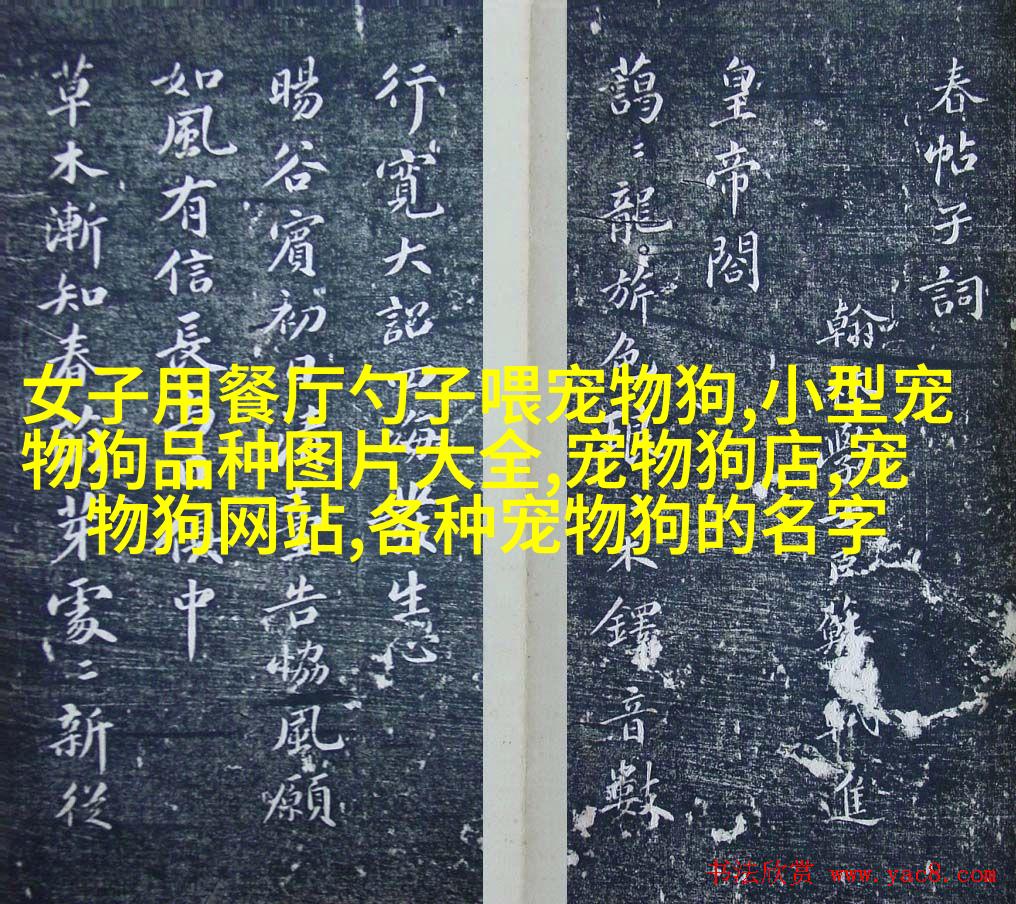 春帖子詞
翰 學 臣蘇軾進
皇帝閤
藹〻龍旂色 木鐸音數
行寬大詔四海 生心
暘谷賓初日 臺告協風願
如風有信長 日 中
草木漸知春 芽處〻新從
女子用餐厅勺子喂宠物狗,小型宠
物狗品种图片大全,宠物狗店,宠
物狗网站,各种宠物狗的名字
书法欣赏 www.yac8.com